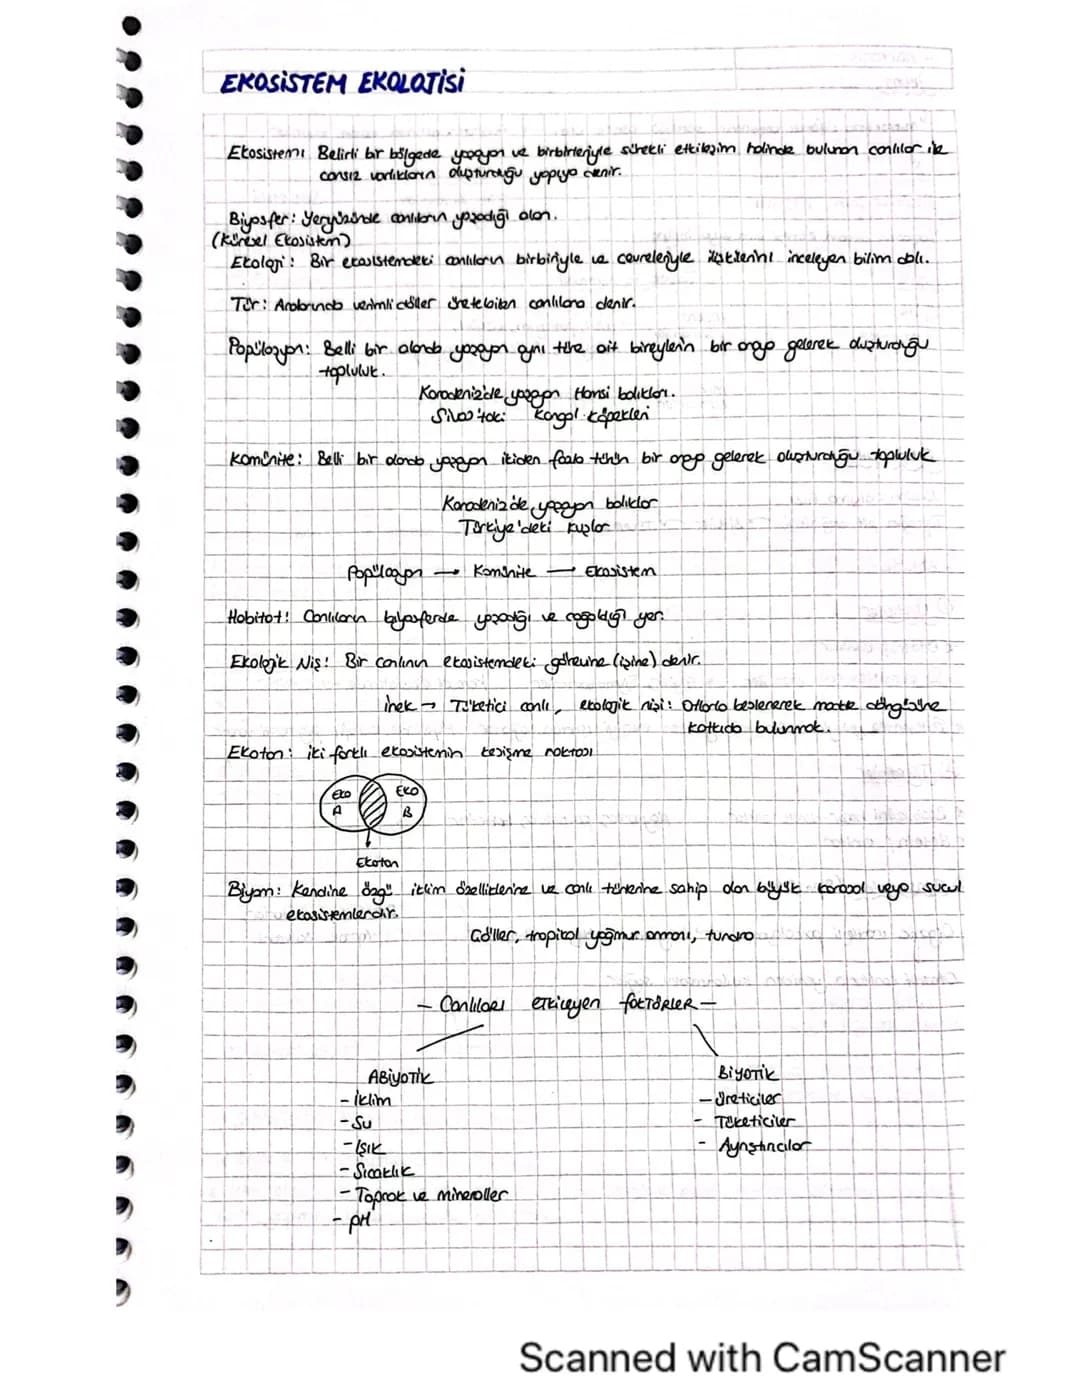 EKOSİSTEM EKOLOJİSİ
Ekosistem: Belirli bir bölgede yaşayan ve birbirleriyle sürekli etkileşim halinde bulunan canlılar ile
cansız varlıkların oluşturduğu yapıya denir.
Biyosfer: Yeryüzünde canlıların yaşadığı alan.
(Küresel Ekosistem)
Ekoloji: Bir ekosistemdeki canlıların birbiriyle ve çevreleriyle ilişkilerini inceleyen bilim dalı.
Tür: Aralarında verimli döller üretebilen canlılara denir.
Popülasyon: Belli bir alanda yaşayan aynı türe ait bireylerin bir araya gelerek oluşturduğu
topluluk.
Karadeniz'de yaşayan Hamsi balıkları.
Sivas'taki Kangal köpekleri
Komünite: Belli bir alanda yaşayan ikiden fazla türün bir araya gelerek oluşturduğu topluluk
Karadeniz'de yaşayan balıklar
Türkiye'deki kuşlar
Popülasyon → Komünite → Ekosistem
Habitat: Canlıların biyosferde yaşadığı ve çoğaldığı yer.
Ekolojik Niş: Bir canlının ekosistemdeki görevine (işine) denir.
İnek → Tüketici canlı, ekolojik nişi: Otlarla beslenerek madde döngüsüne
katkıda bulunmak.
Ekoton: iki farklı ekosistemin kesişme noktası
Eko A Eko B
Ekoton
Biyom: Kendine özgü iklim özelliklerine ve canlı türlerine sahip olan büyük karasal veya sucul
ekosistemlerdir.
Göller, tropikal yağmur ormanı, tundra
- Canlıları etkileyen faktörler -
ABİYOTİK BİYOTİK
- İklim - Üreticiler
- Su - Tüketiciler
- Işık - Ayrıştırıcılar
- Sıcaklık
- Toprak ve mineraller
- pH
Scanned with CamScanner